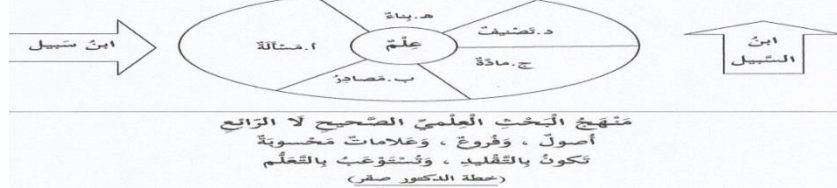 ابنُ سَبيل
ابنُ
السَّبيل
عِلْمٌ
أ.مَسْأَلَةٌ
ب.مَصَادِرُ
ج.مادَّةٌ
د.تَصْنيفٌ
هـ.بِناءٌ
مَنْهَجُ الْبَحْثِ الْعِلْميِّ الصَّحيحِ لَا الرّائعِ
أصولٌ ، وَفُروعٌ ، وَعَلاماتٌ مَحْسوبَةٌ
تَكونُ بِالتَّقْليدِ ، وَتُسْتَوْعَبُ بِالتَّعَلُّمِ
(خطة الدكتور صقر)